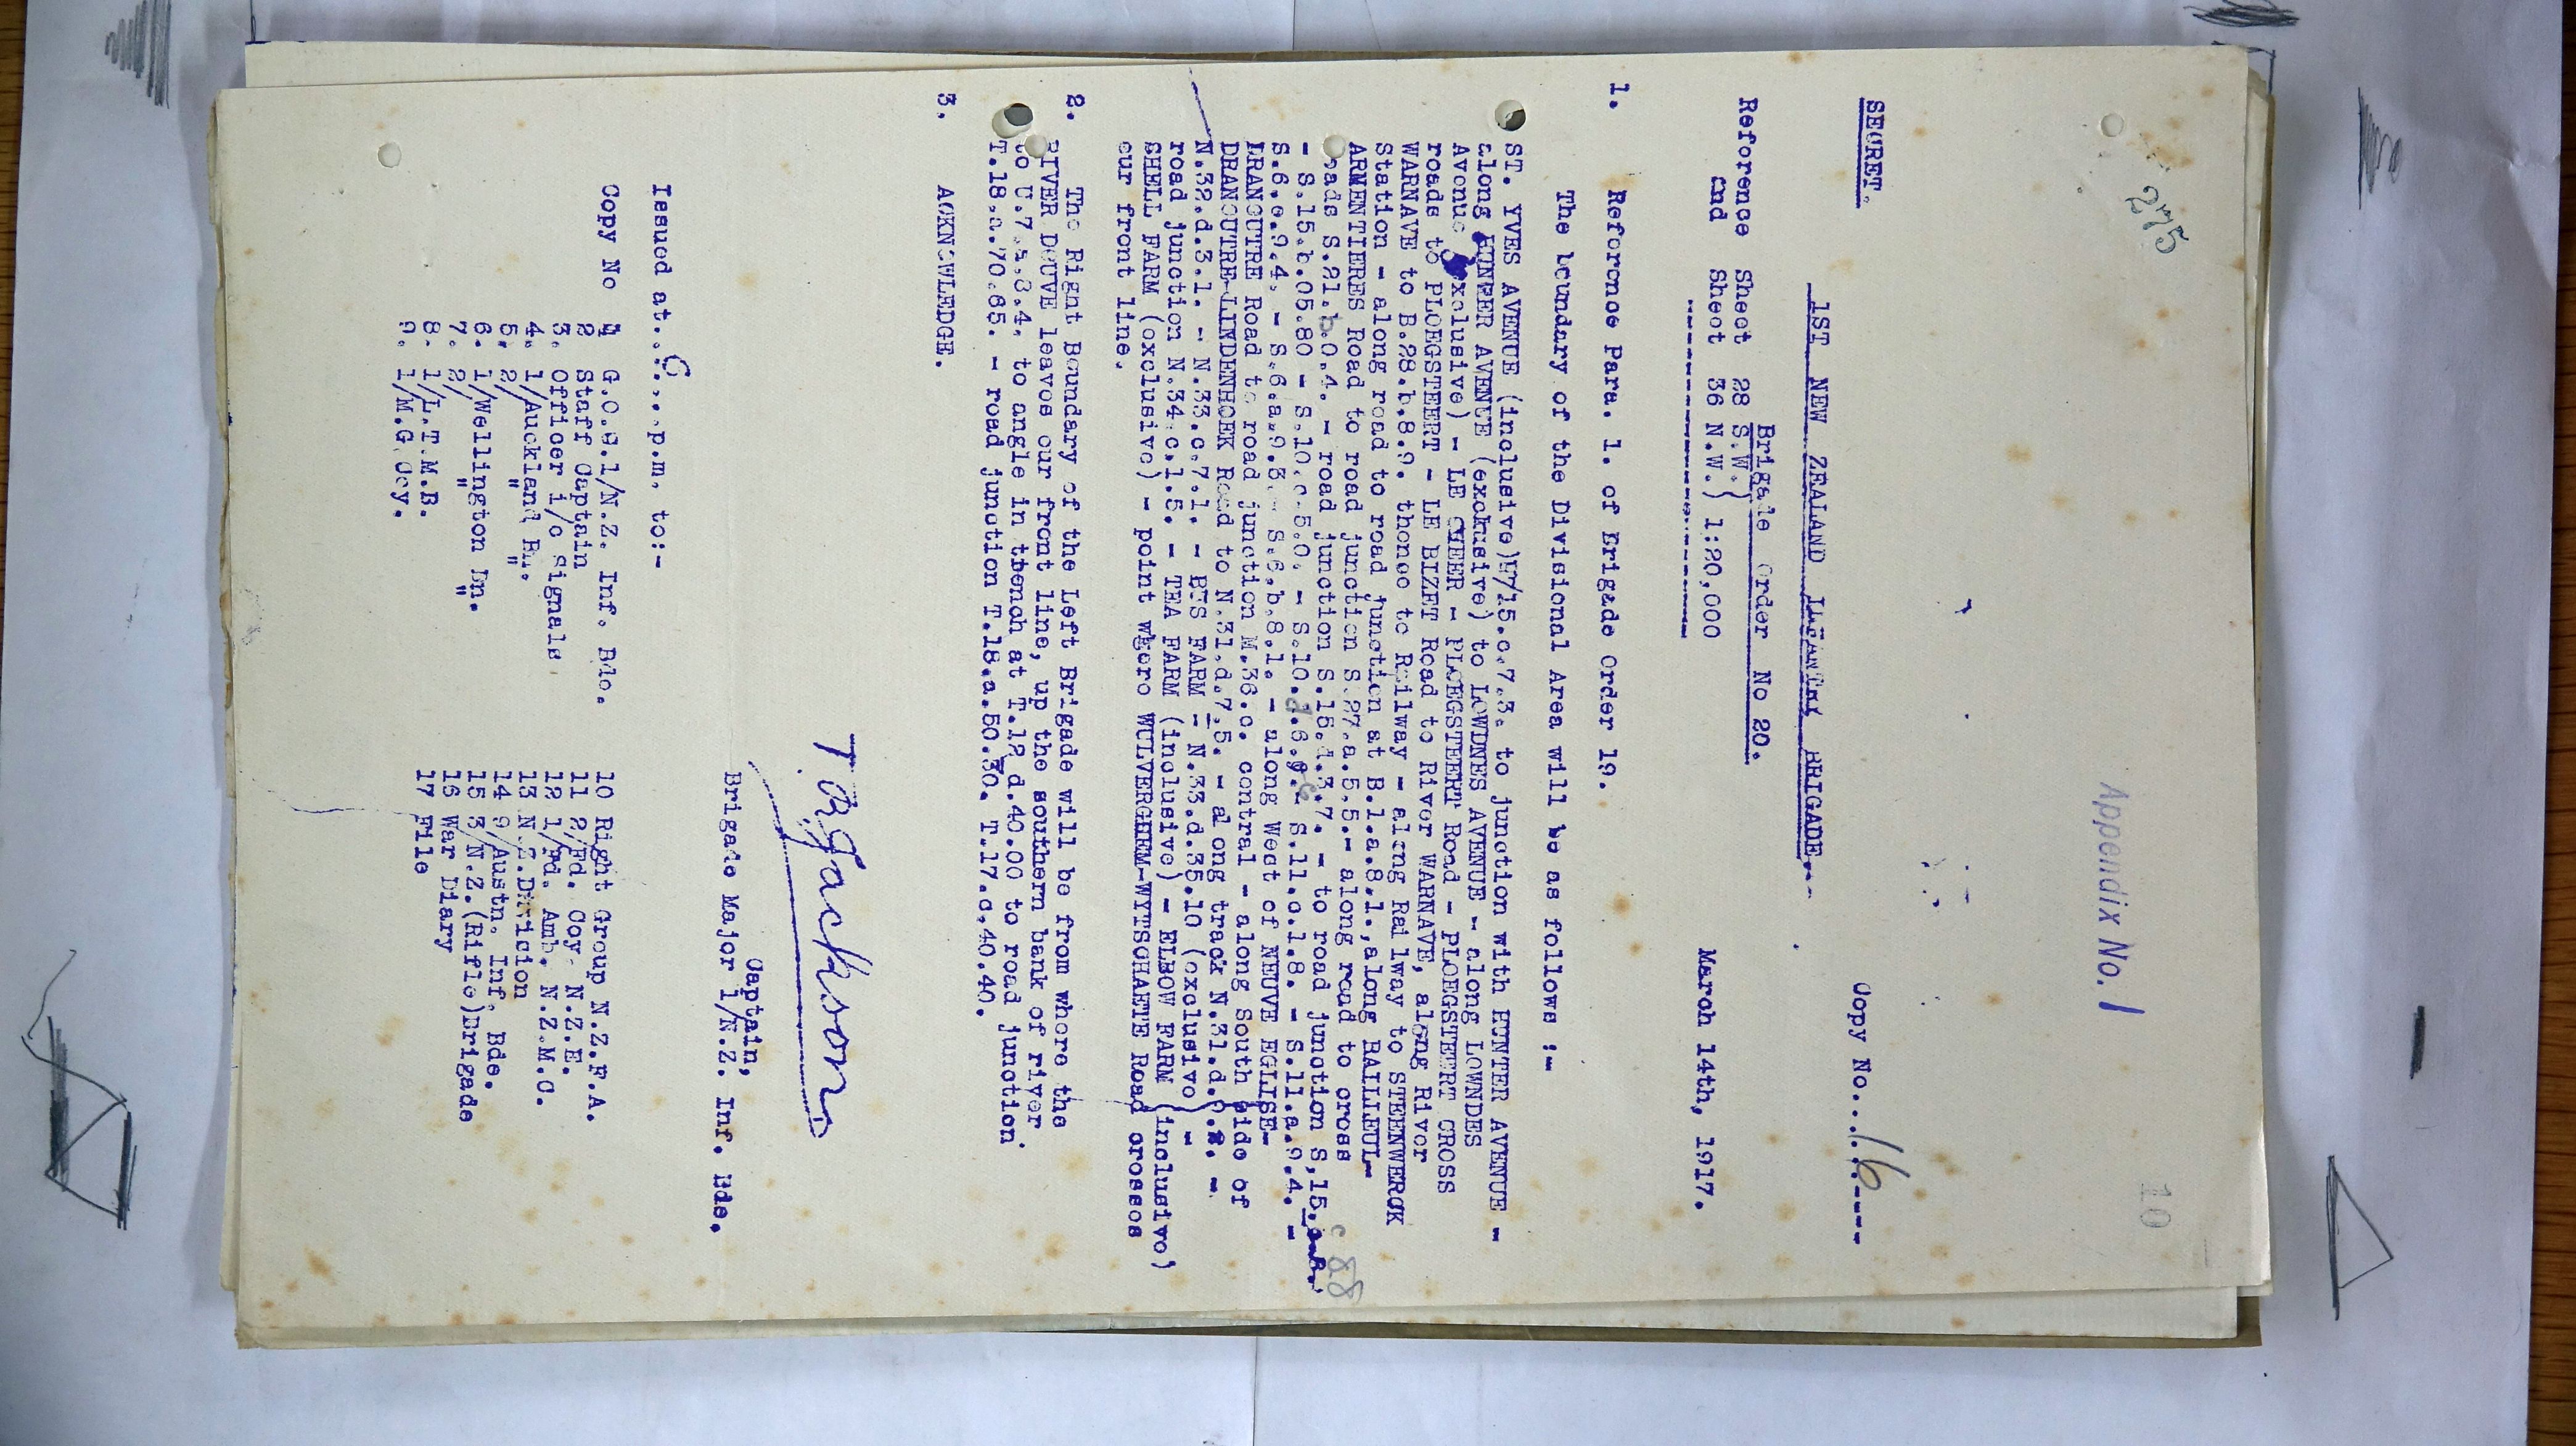 275
Appendix No. 1
10
SECRET.
Copy No....16.----
1ST NEW ZEALAND INFANTRY BRIGADE.
Brigade Order No 20.
Reference Sheet 28 S.W.(
and Sheet 36 N.W.) 1:20,000
March 14th, 1917.
1. Reference Para. 1. of Brigade Order 19.
The boundary of the Divisional Area will be as follows :-
ST. YVES AVENUE (inclusive) U/15.c.7.3. to junction with HUNTER AVENUE -
along HUNTER AVENUE (exclusive) to LOWNDES AVENUE - along LOWNDES
Avenue (exclusive) - LE GHEER - PLOEGSTEERT Road - PLOEGSTEERT CROSS
roads to PLOEGSTEERT - LE BIZET Road to River WARNAVE, along River
WARNAVE to B.28.b.8.9. thence to Railway - along Railway to STEENWERCK
Station - along road to road junction at B.1.a.8.1., along BAILLEUL-
ARMENTIERES Road to road junction S.27.a.5.5.- along road to cross
roads S.21.b.0.4. - road junction S.15.d.3.7. - to road junction S.15. c 88
- S.15.b.05.80 - S.10.c.5.0. - S.10.d.6.9. - S.11.c.1.8. - S.11.a.9.4. -
S.6.c.9.4. - S.6.a.9.3. - S.6.b.8.1. - along West of NEUVE EGLISE-
DRANOUTRE Road to road junction M.36.c. central - along South side of
DRANOUTRE-LINDENHOEK Road to N.31.d.7.5. - along track N.31.d. -
N.32.d.3.1. - N.33.c.7.1. - PTS FARM - N.33.d.35.10 (exclusive) -
road junction N.34.c.1.5. - TEA FARM (inclusive) - ELBOW FARM (inclusive)
SHELL FARM (exclusive) - point where WULVERGHEM-WYTSCHAETE Road crosses
our front line.
2. The Right Boundary of the Left Brigade will be from where the
RIVER DOUVE leaves our front line, up the southern bank of river
to U.7.a.8.4. to angle in trench at T.12.d.40.00 to road junction
T.18.a.70.65. - road junction T.18.a.50.30. T.17.c.40.40.
3. ACKNOWLEDGE.
Jackson
Captain,
Brigade Major 1/N.Z. Inf. Bde.
Issued at.......p.m. to:-
Copy No 1 G.O.C.1/N.Z. Inf. Bde.
2 Staff Captain
3. Officer i/c Signals
4. 1/Auckland Bn.
5. 2/ " "
6. 1/Wellington Bn.
7. 2/ " "
8. 1/L.T.M.B.
9. 1/M.G Coy.
10 Right Group N.Z.F.A.
11 2/Fd. Coy N.Z.E.
12 1/Fd. Amb. N.Z.M.C.
13 N.Z.Division
14 9/Austn. Inf. Bde.
15 3/N.Z.(Rifle)Brigade
16 War Diary
17 File